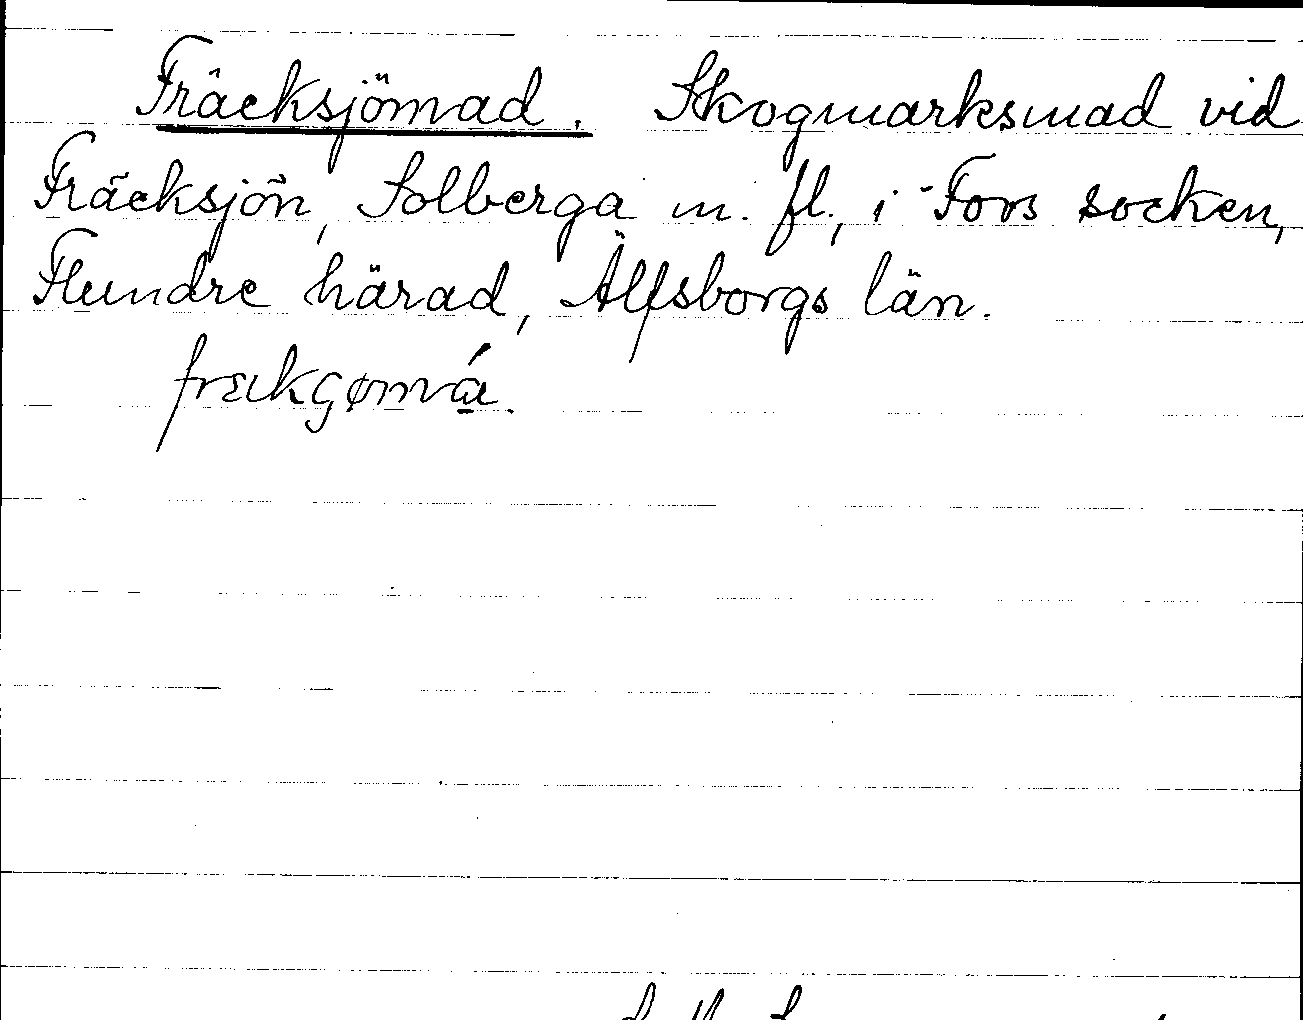 Fräcksjömad. Skogmarksmad vid
Fräcksjön, Solberga m. fl., i Fors socken,
Flundre härad, Älfsborgs län.